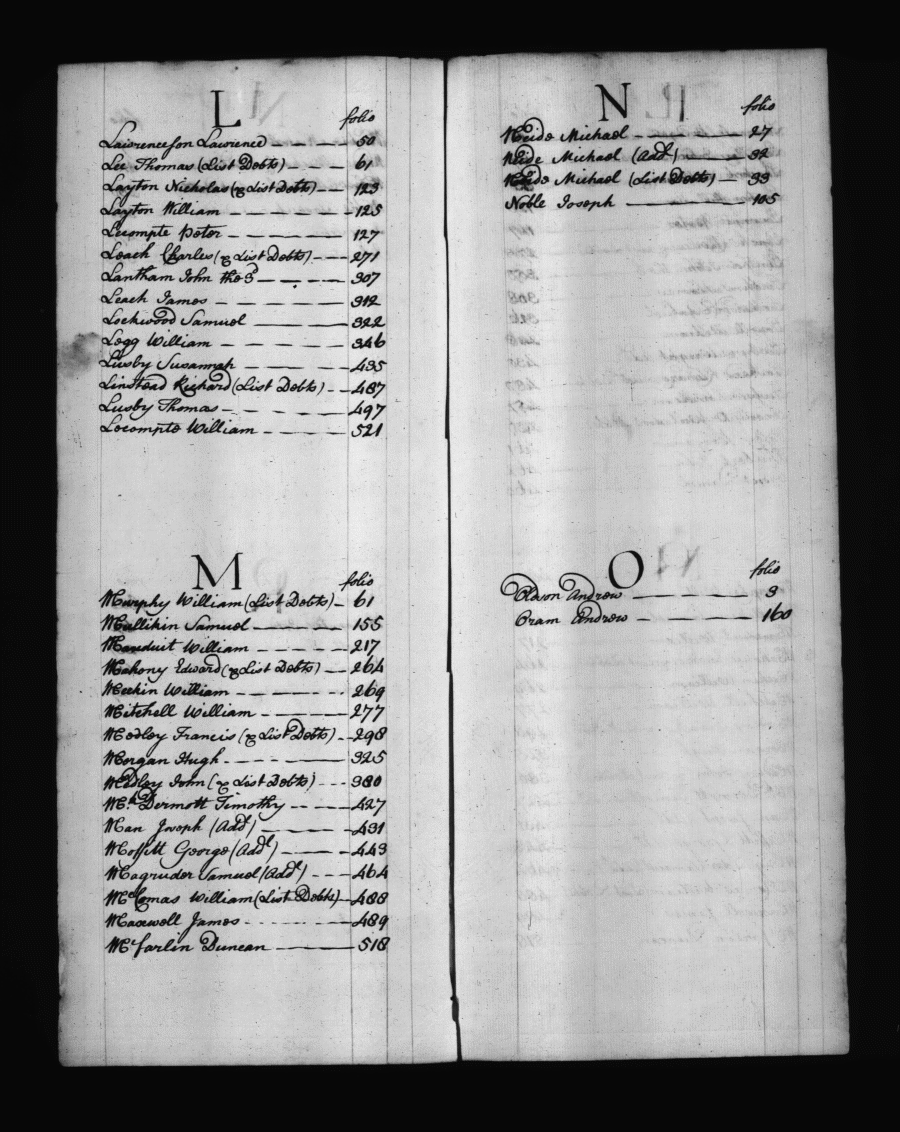 L
folio
Lawrenceson Lawrence 50
Lee Thomas (List Debts) 61
Layton Nicholas (& List Debts) 123
Layton William 125
Lecompte Peter 127
Leach Charles (& List Debts) 271
Lantham John the 3d 307
Leach James 312
Lockwood Samuel 322
Legg William 346
Lusby Susannah 435
Linstead Richard (List Debts) 487
Lusby Thomas 497
Lecompte William 521
M
folio
Murphy William (List Debts) 61
Mullikin Samuel 155
Mauduit William 217
Mahony Edward (& List Debts) 264
Meekin William 269
Mitchell William 277
Medley Francis (& List Debts) 298
Morgan Hugh 325
Medley John (& List Debts) 380
Dermott Timothy 427
Man Joseph (Addl) 431
Moffett George (Addl) 443
Magruder Samuel (Addl) 464
McComas William (List Debts) 488
Maxwell James 489
Mcfarlin Duncan 518
N
folio
Neide Michael 27
Neide Michael (Addl) 32
Neide Michael (List Debts) 33
Noble Joseph 105
O
folio
Andrew 3
Oram Andrew 160